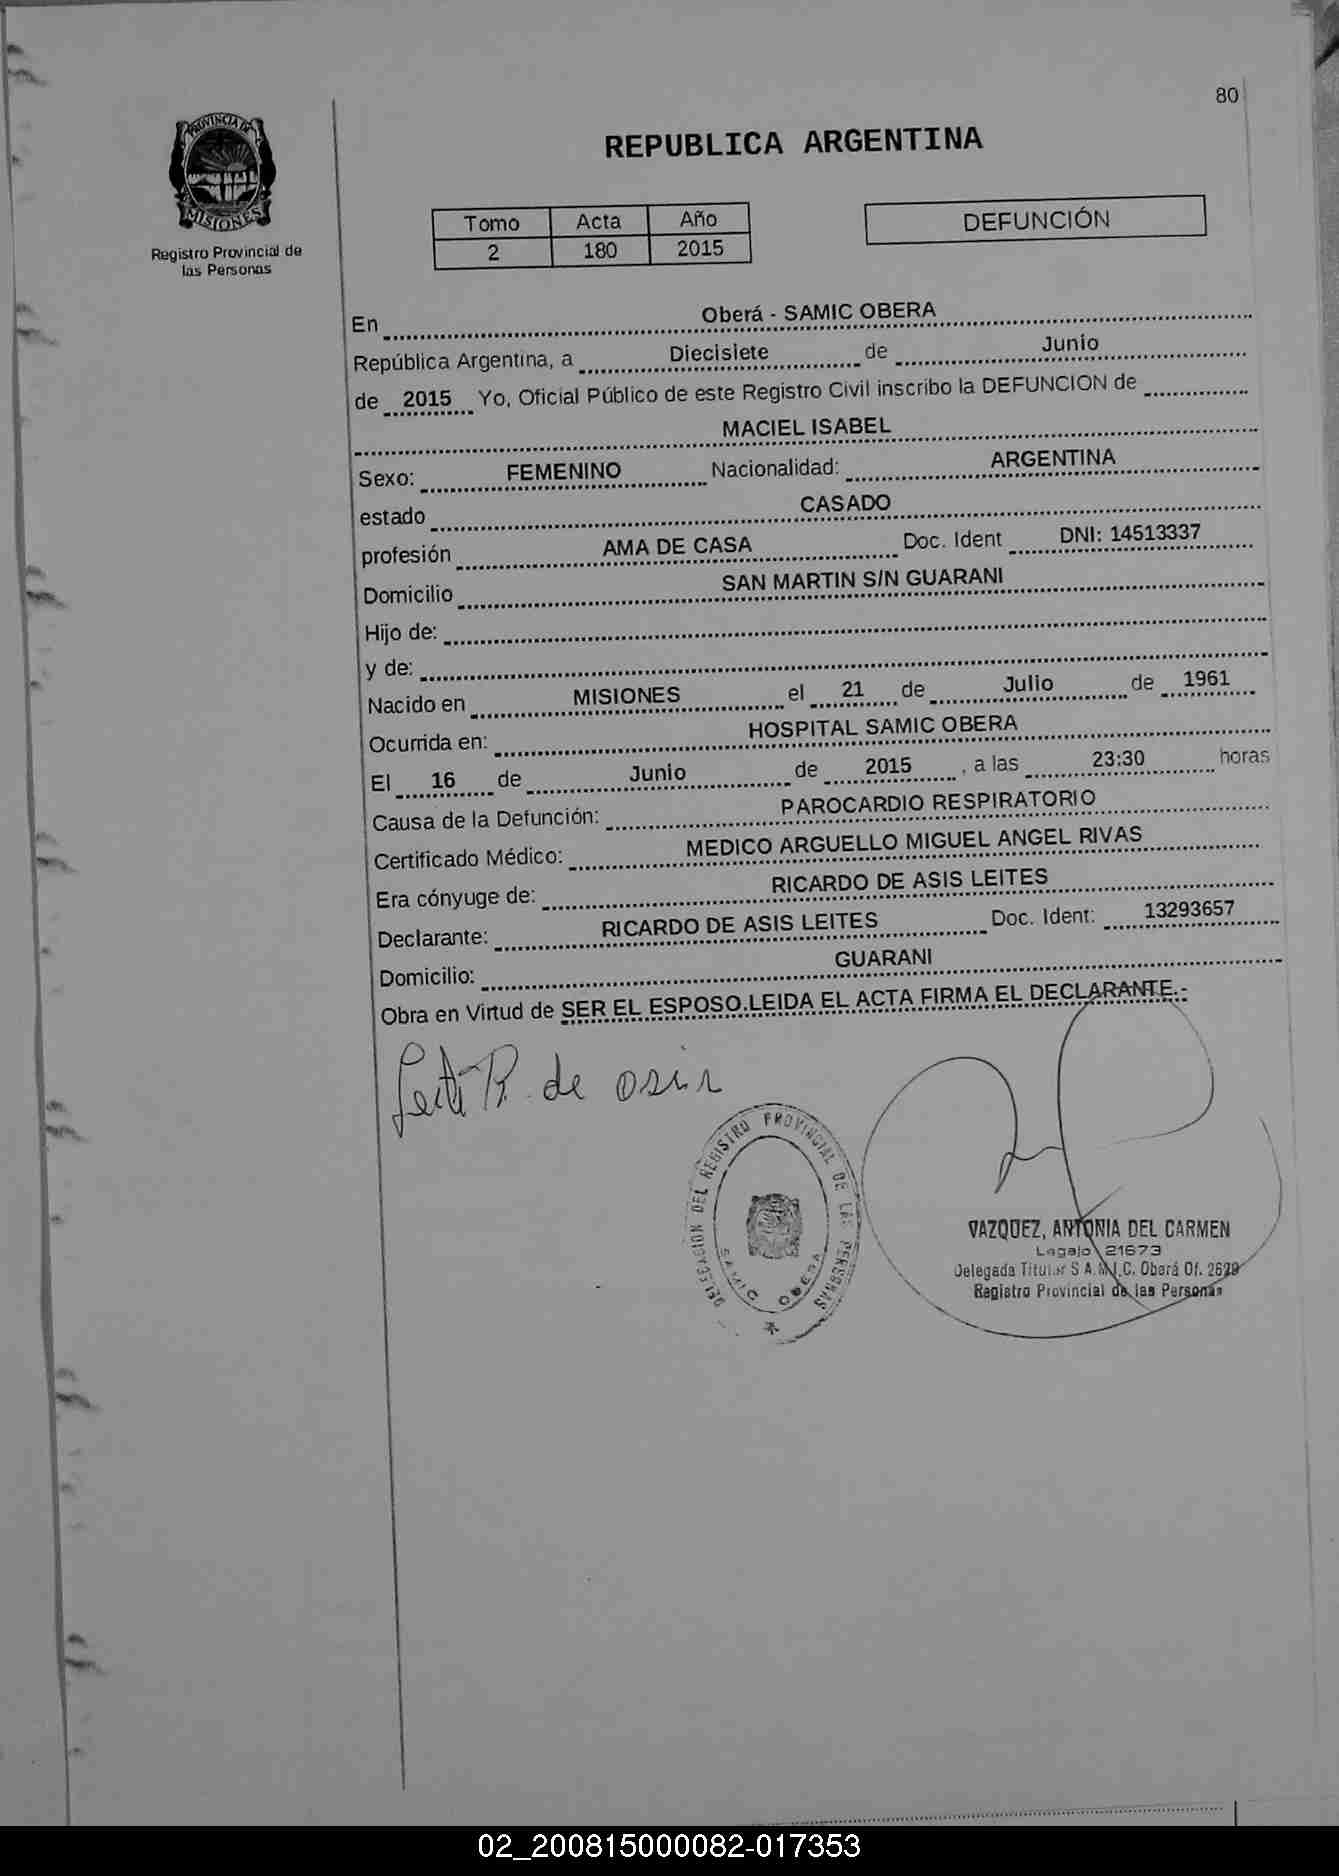 80
PROVINCIA DE
MISIONES
Registro Provincial de
las Personas
REPUBLICA ARGENTINA
Tomo Acta Año
2 180 2015
DEFUNCIÓN
En Oberá - SAMIC OBERA
República Argentina, a Diecisiete de Junio
de 2015 Yo, Oficial Público de este Registro Civil inscribo la DEFUNCION de
MACIEL ISABEL
Sexo: FEMENINO Nacionalidad: ARGENTINA
estado CASADO
profesión AMA DE CASA Doc. Ident DNI: 14513337
Domicilio SAN MARTIN S/N GUARANI
Hijo de:
y de:
Nacido en MISIONES el 21 de Julio de 1961
Ocurrida en: HOSPITAL SAMIC OBERA
El 16 de Junio de 2015 , a las 23:30 horas
Causa de la Defunción: PAROCARDIO RESPIRATORIO
Certificado Médico: MEDICO ARGUELLO MIGUEL ANGEL RIVAS
Era cónyuge de: RICARDO DE ASIS LEITES
Declarante: RICARDO DE ASIS LEITES Doc. Ident: 13293657
Domicilio: GUARANI
Obra en Virtud de SER EL ESPOSO.LEIDA EL ACTA FIRMA EL DECLARANTE.-
R. de asis
DELEGACION DEL REGISTRO PROVINCIAL DE LAS PERSONAS
SAMIC OBERA
VAZQUEZ, ANTONIA DEL CARMEN
Legajo 21673
Delegada Titular S.A.M.I.C. Oberá Of. 2629
Registro Provincial de las Personas
02_200815000082-017353